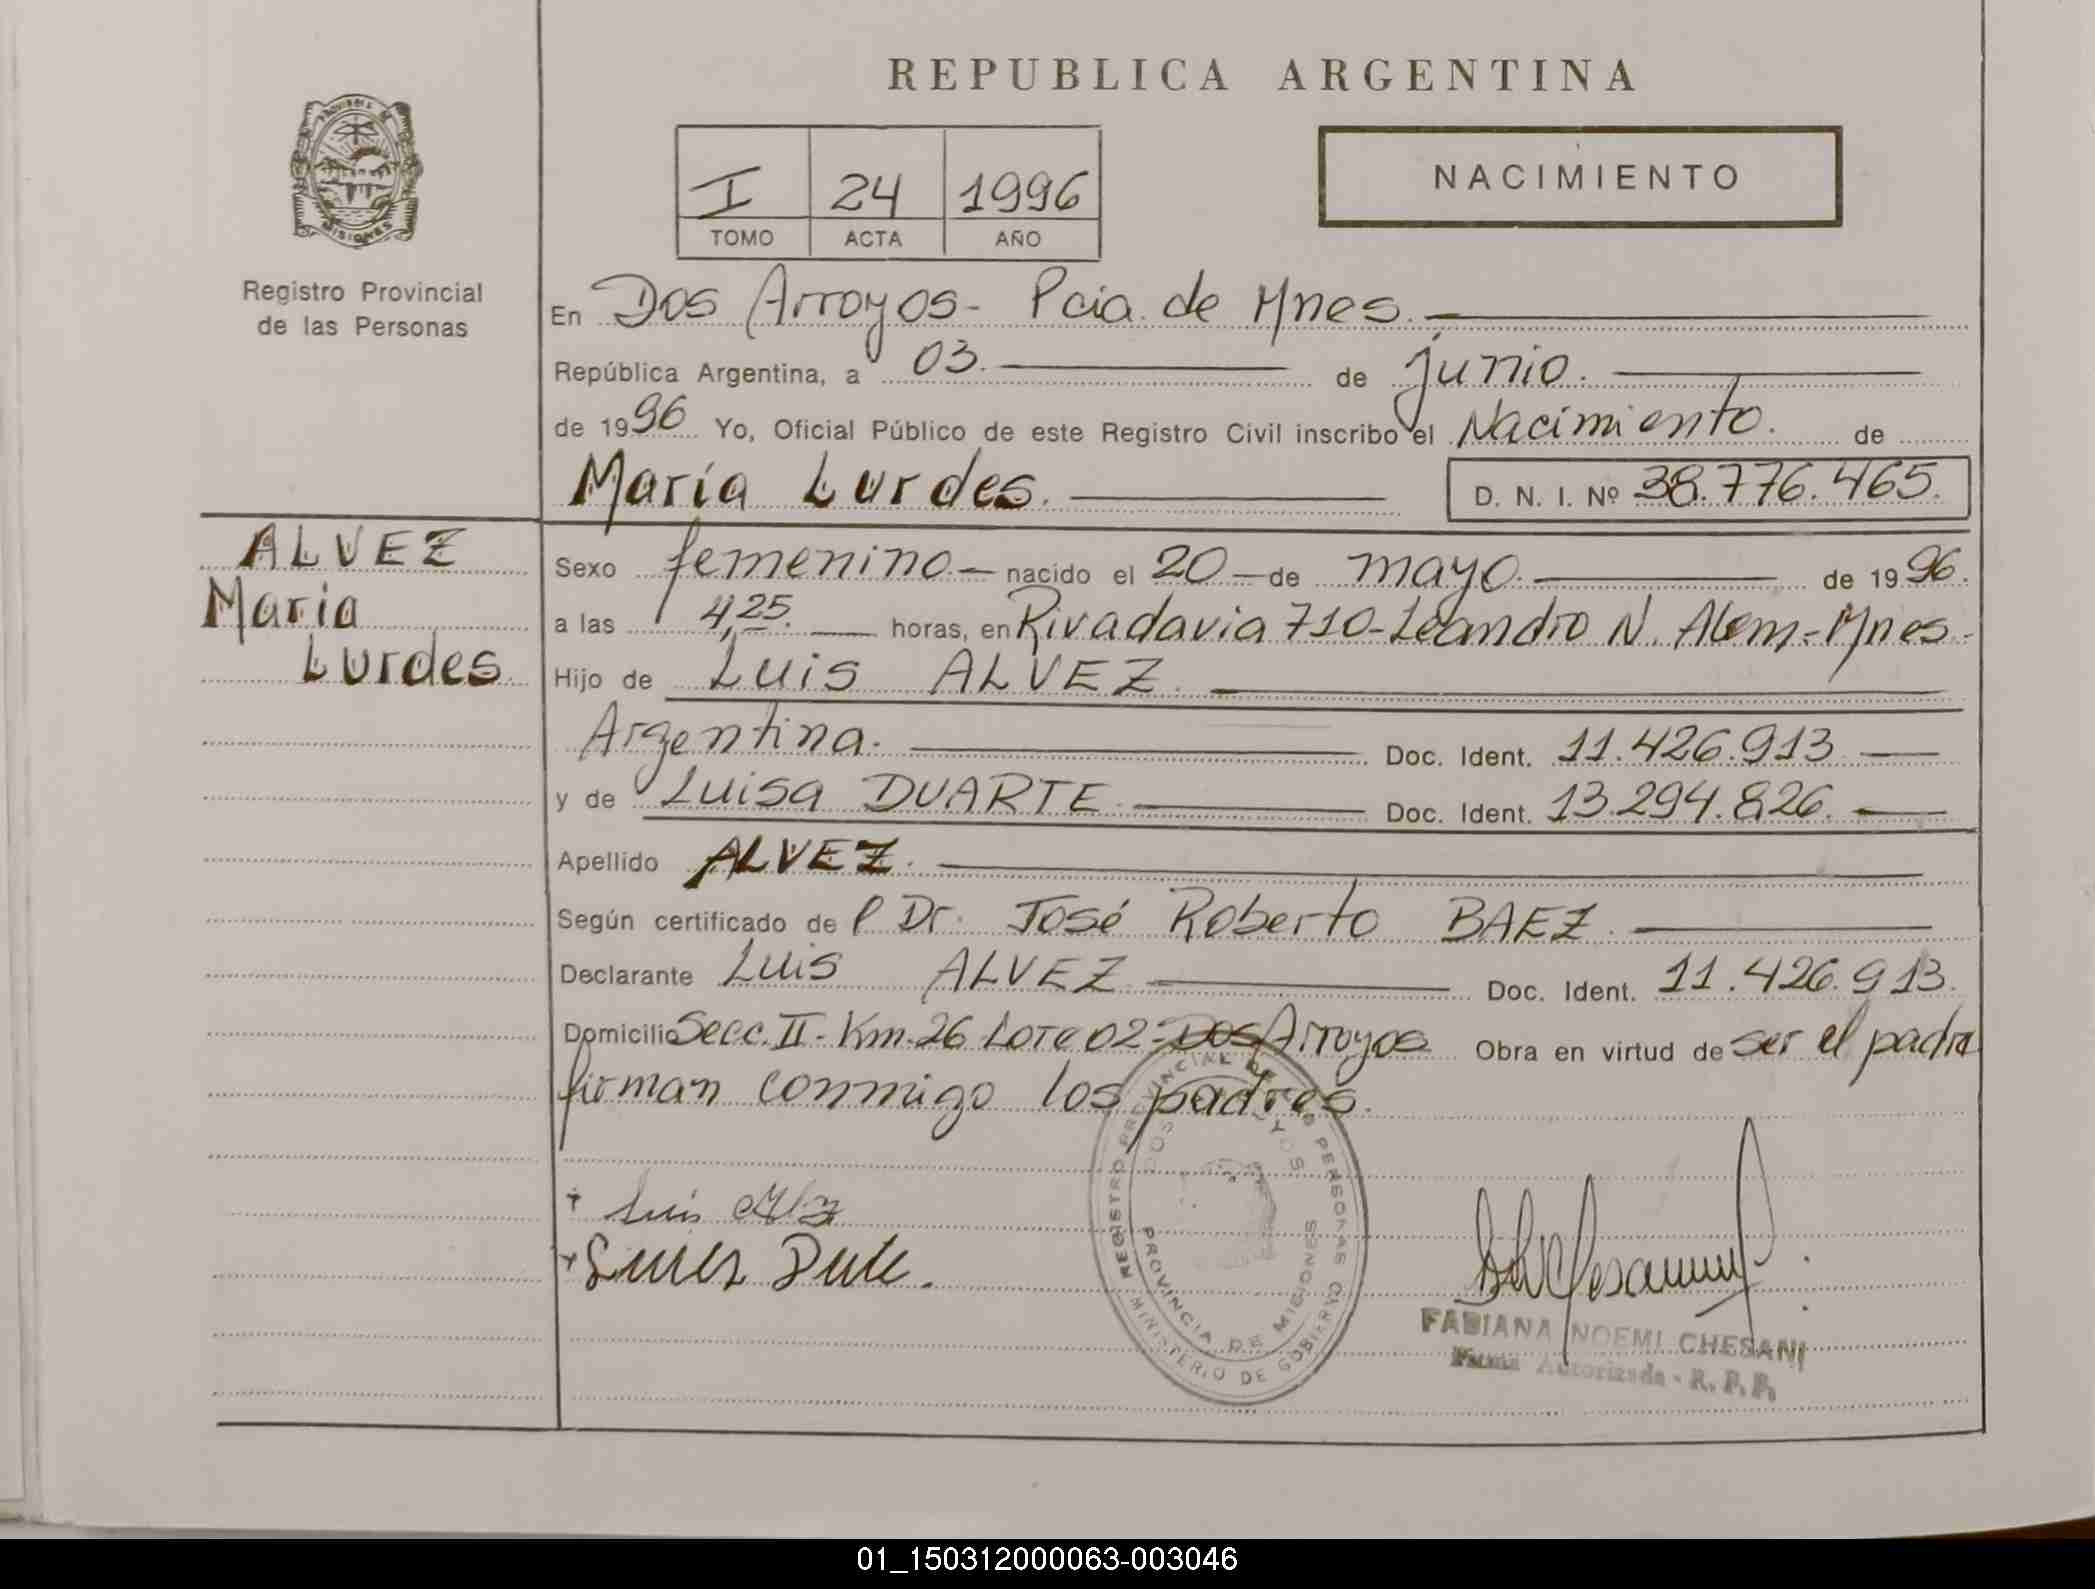 REPUBLICA ARGENTINA
PROVINCIA DE MISIONES
I 24 1996
TOMO ACTA AÑO
NACIMIENTO
Registro Provincial
de las Personas
En Dos Arroyos - Pcia. de Mnes.
República Argentina, a 03. de junio.
de 1996 Yo, Oficial Público de este Registro Civil inscribo el Nacimiento. de
María Lurdes. D. N. I. Nº 38.776.465.
ALVEZ
María
Lurdes
Sexo femenino - nacido el 20 - de mayo. de 1996.
a las 4,25. horas, en Rivadavia 710 - Leandro N. Alem - Mnes.
Hijo de Luis ALVEZ.
Argentina. Doc. Ident. 11.426.913
y de Luisa DUARTE. Doc. Ident. 13.294.826.
Apellido ALVEZ.
Según certificado de l Dr. José Roberto BAEZ.
Declarante Luis ALVEZ Doc. Ident. 11.426.913.
Domicilio Secc. II - Km. 26 Lote 02 - Dos Arroyos Obra en virtud de ser el padre
firman conmigo los padres.
REGISTRO PROVINCIAL DE LAS PERSONAS
DOS ARROYOS
PROVINCIA DE MISIONES
MINISTERIO DE GOBIERNO
Luis
FABIANA NOEMI CHESANI
Firma Autorizada - R. P. P.
01_150312000063-003046